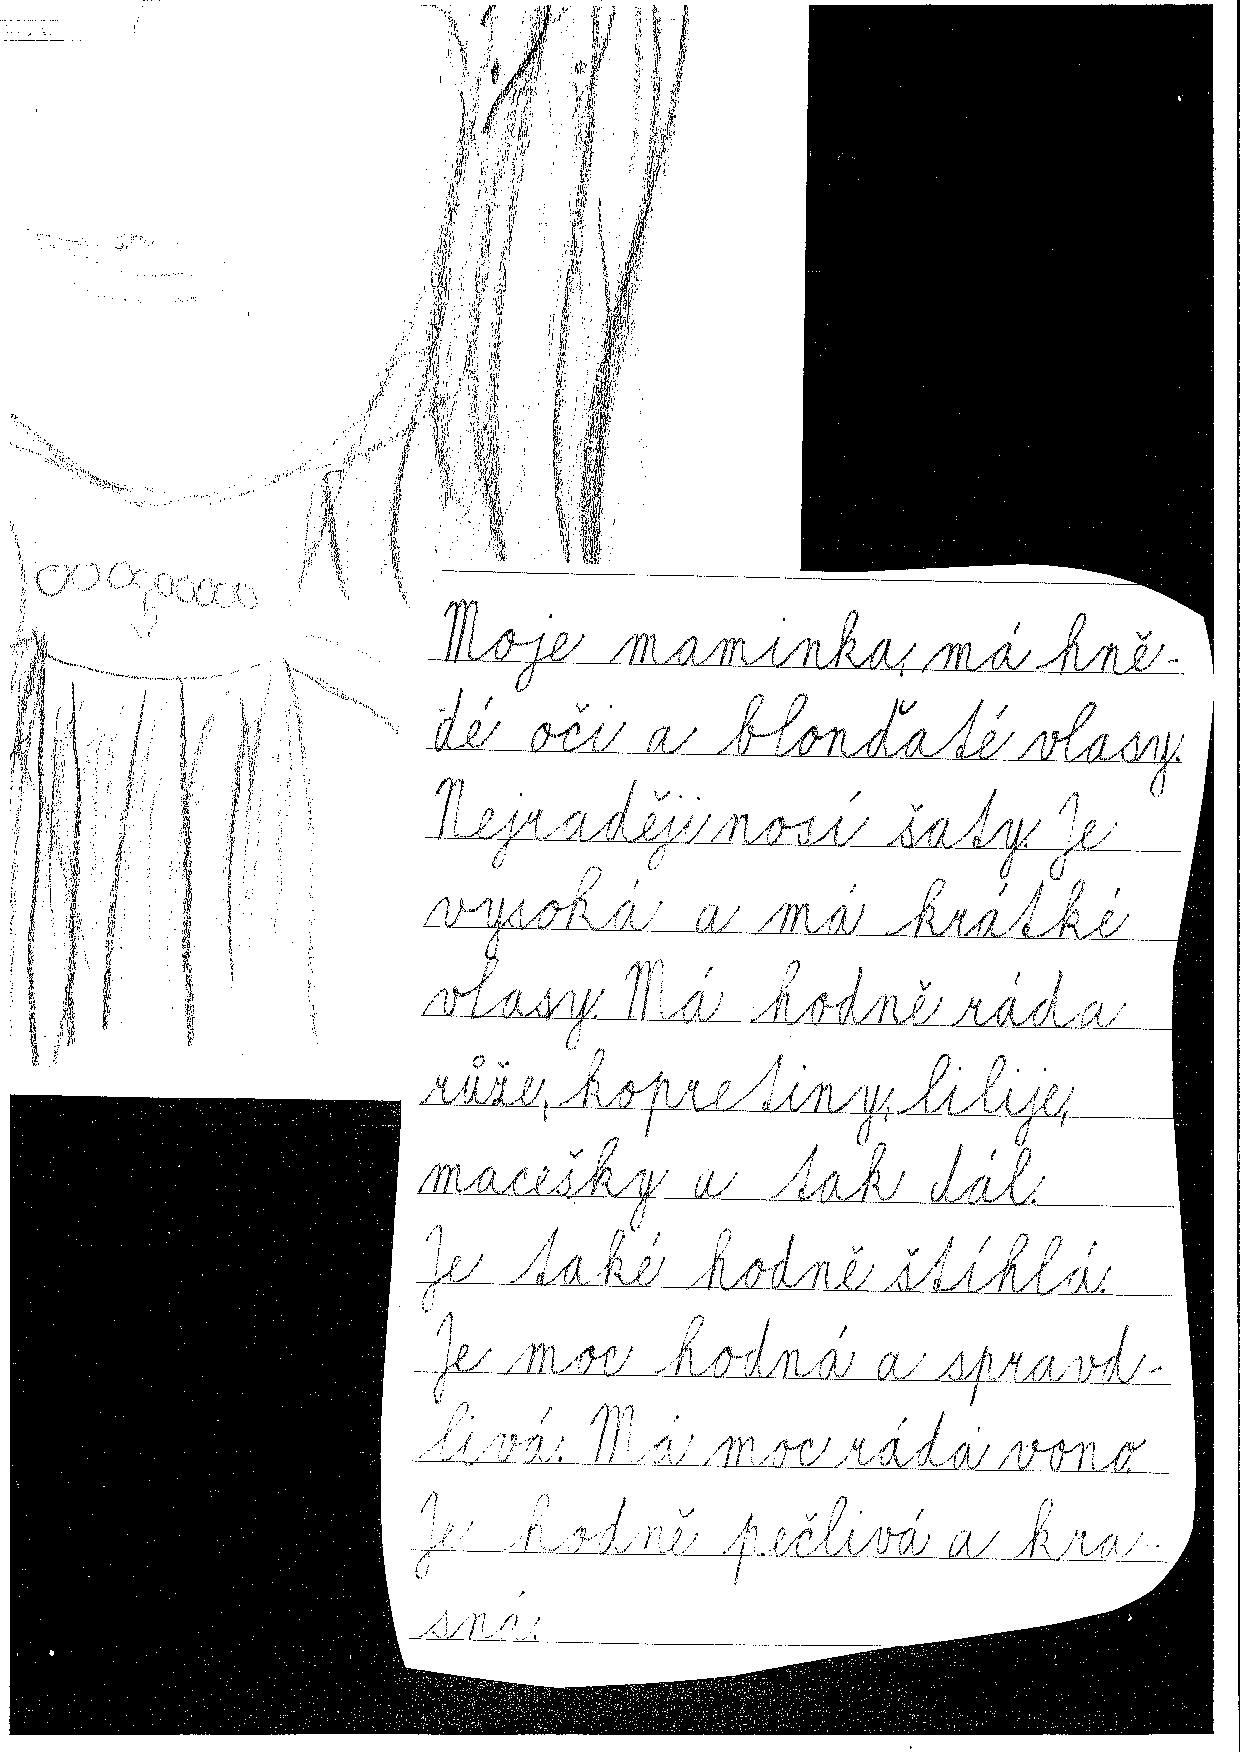 Moje maminka, má hně-
dé oči a blonďaté vlasy.
Nejraději nosí šaty. Je
vysoká a má krátké
vlasy. Má hodně ráda
růže, kopretiny, lilije,
macešky a tak dál.
Je také hodně štíhlá.
Je moc hodná a spravd-
livá. Má moc ráda
Je hodně pečlivá a kra-
sná.